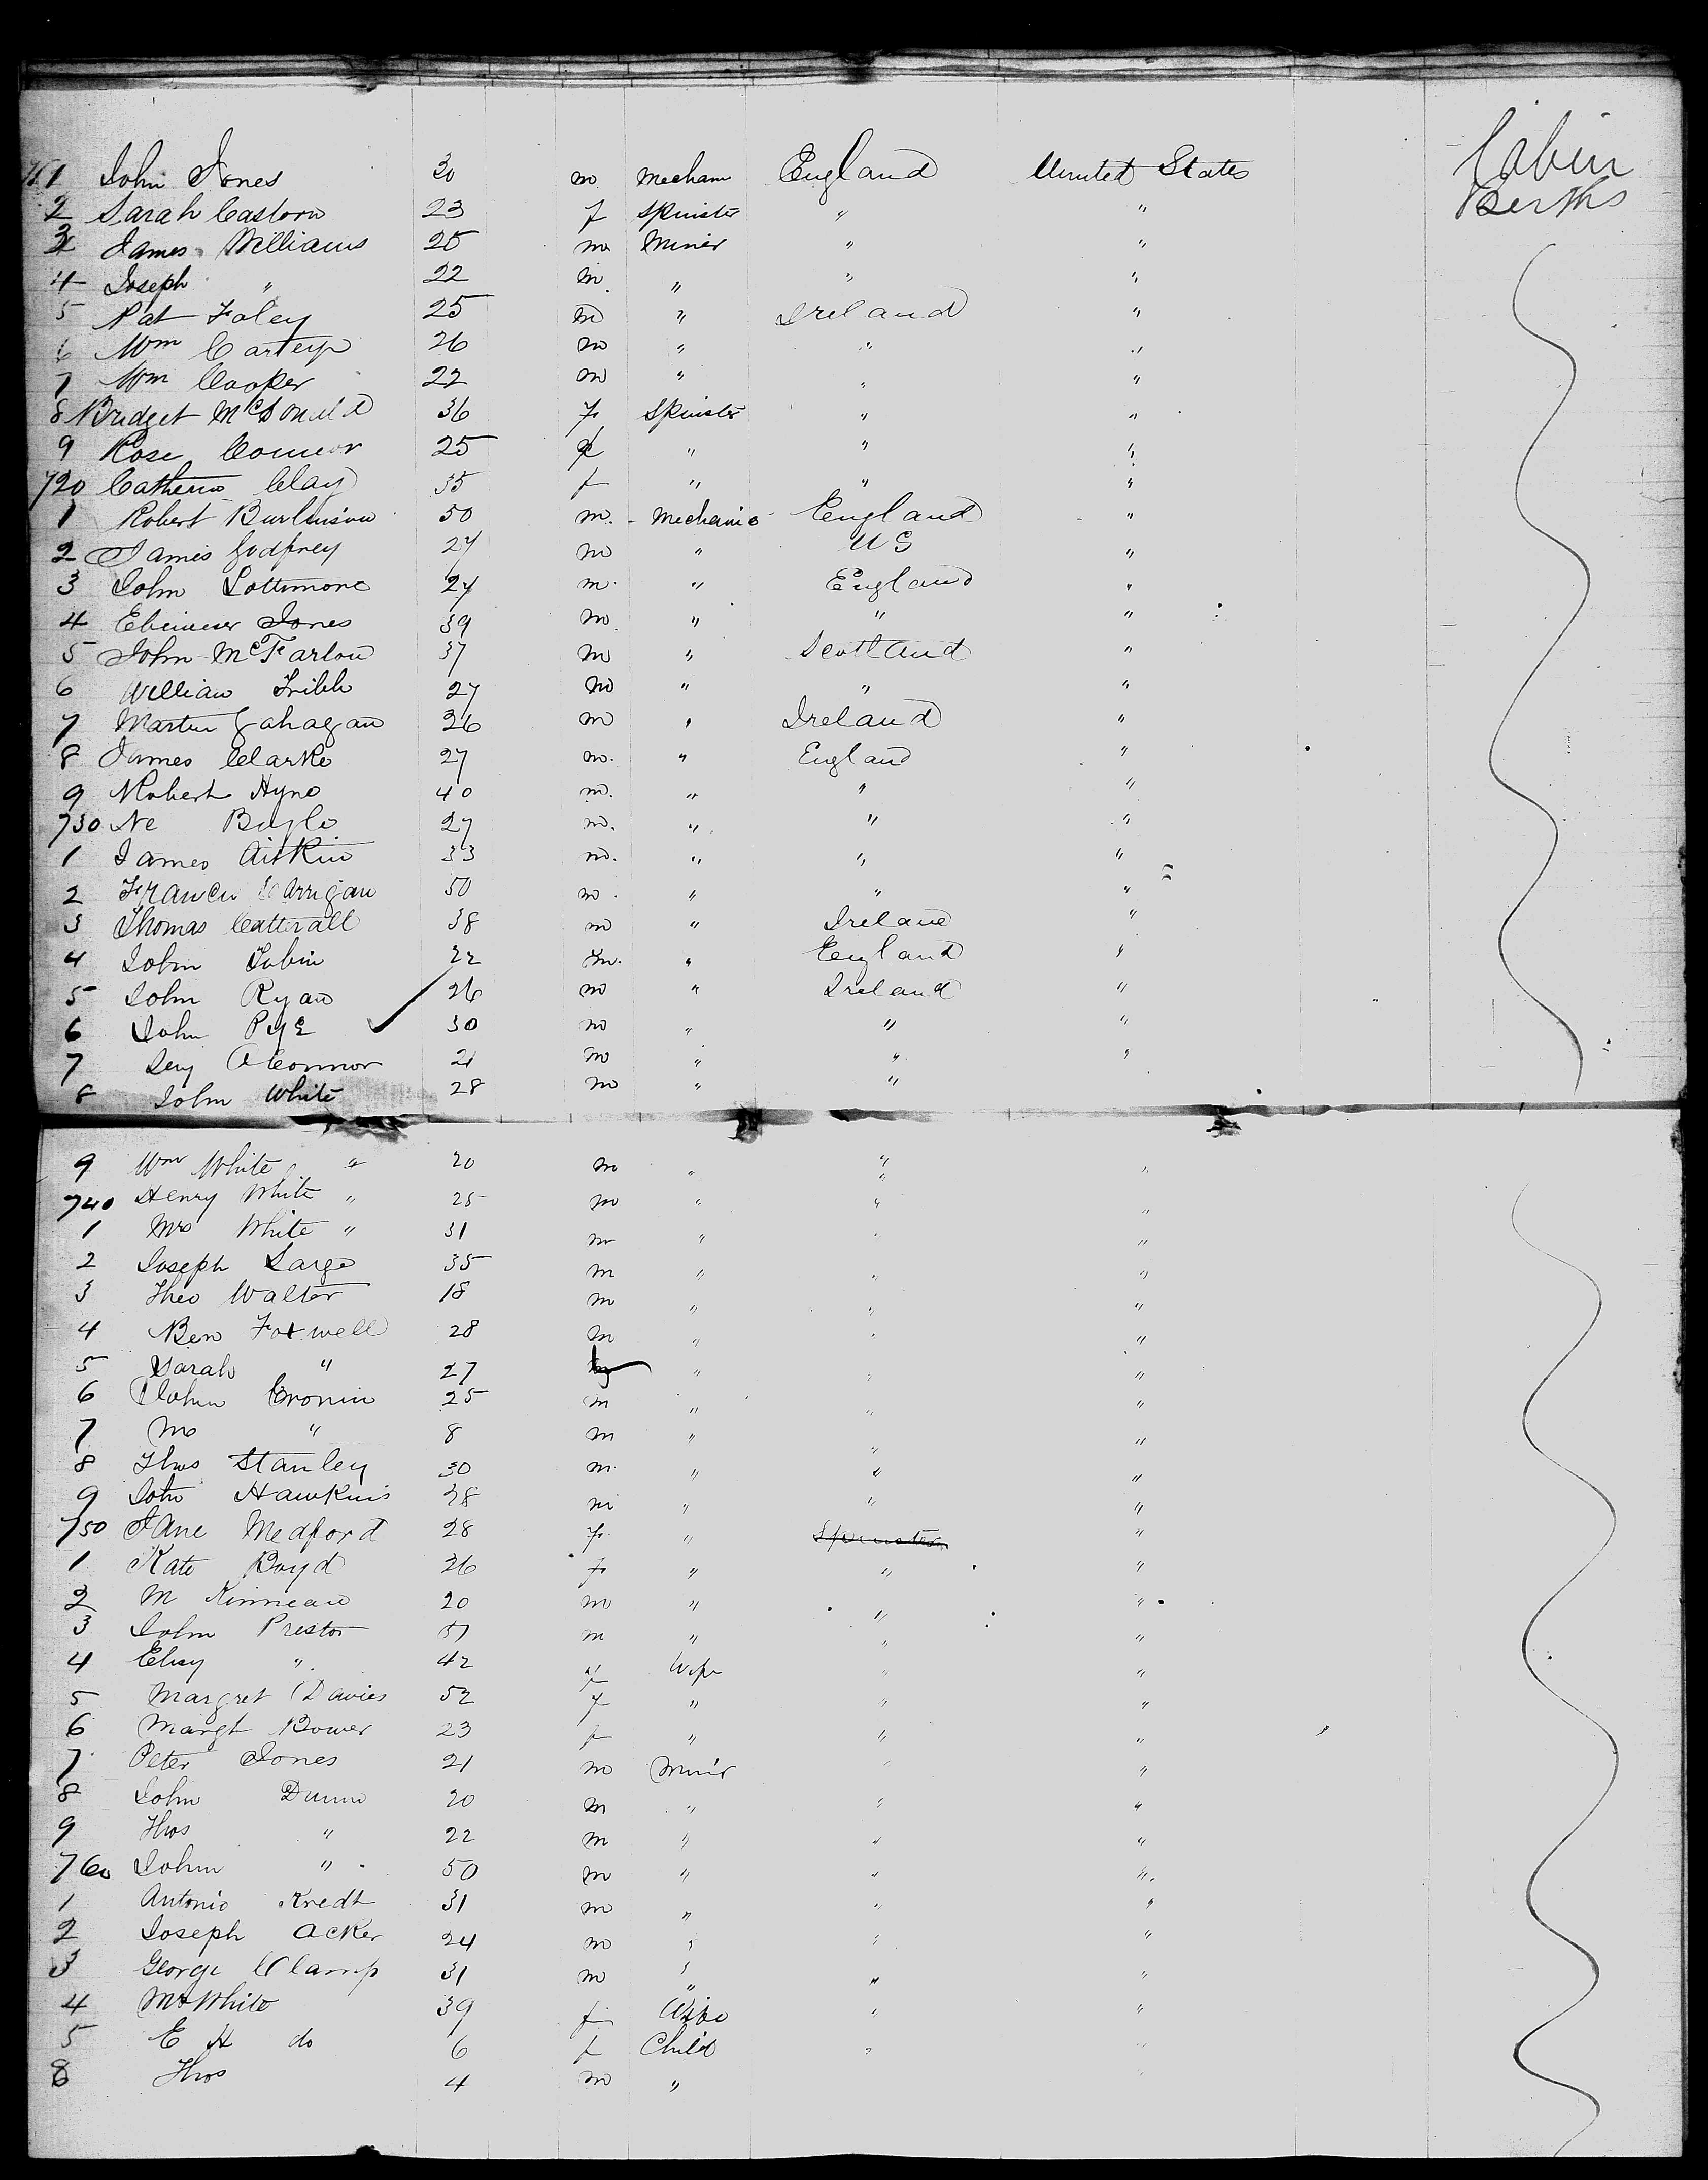 711 John Jones 30 m Mecham England United States Cabin
2 Sarah Eastorn 23 f Spinster " " Berths
3 James Williams 25 m Miner " "
4 Joseph " 22 m " " "
5 Pat Foley 25 m " Ireland "
6 Wm 26 m " " "
7 Wm Cooper 22 m " " "
8 Bridget McDonald 36 f Spinster " "
9 Rose Connor 25 f " " "
720 Catherine Clay 35 f " " "
1 Robert Burlinson 50 m Mechanic England "
2 James Godfrey 27 m " US "
3 John Lottimore 27 m " England "
4 Ebenezer Jones 39 m " " "
5 John McFarlon 37 m " Scotland "
6 William 27 m " " "
7 Martin Gahagan 26 m " Ireland "
8 James Clarke 27 m " England "
9 Robert Hyne 40 m " " "
730 Ne 27 m " " "
1 James Aitkin 33 m " " "
2 Francis Carrigan 50 m " " "
3 Thomas Catterall 38 m " Ireland "
4 John Tobin 22 m " England "
5 John Ryan 26 m " Ireland "
6 John Pye 30 m " " "
7 OConnor 21 m " " "
8 John White 28 m " "
9 Wm White " 20 m " " "
740 Henry White " 25 m " " "
1 Mrs White " 31 m " "
2 Joseph Large 35 m " " "
3 Theo Walter 18 m " " "
4 Ben Foxwell 28 m " " "
5 Sarah " 27 " " "
6 John Cronin 25 m " " "
7 " 8 m " " "
8 Thos Stanley 30 m " " "
9 John Hawkins 28 m " " "
750 Jane Medford 28 f " Spinster "
1 Kate Boyd 26 f " " "
2 M Kinnean 20 m " " "
3 John Preston 51 m " " "
4 " 42 f Wife " "
5 Margret Davies 52 f " " "
6 Margt Bower 23 f " " "
7 Peter Jones 21 m Minir " "
8 John Dunn 20 m " " "
9 Thos " 22 m " " "
760 John " 50 m " " "
1 Antonio Kredt 31 m " " "
2 Joseph Acker 24 m " " "
3 George Clamp 31 m " " "
4 White 39 f Wife " "
5 E H do 6 f Child "
8 Thos 4 m "